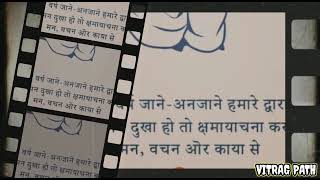 वर्ष जाने-अनजाने हमारे द्वार
दुखा हो तो क्षमायाचना कर
मन, वचन ओर काया से
वर्ष जाने-अनजाने हमारे द्वार
दुखा हो तो क्षमायाचना कर
मन, वचन ओर काया से
र्ष जाने-अनजाने हमारे द्वार
दुखा हो तो क्षमायाचना कर
मन, वचन ओर काया से
VITRAG PATH